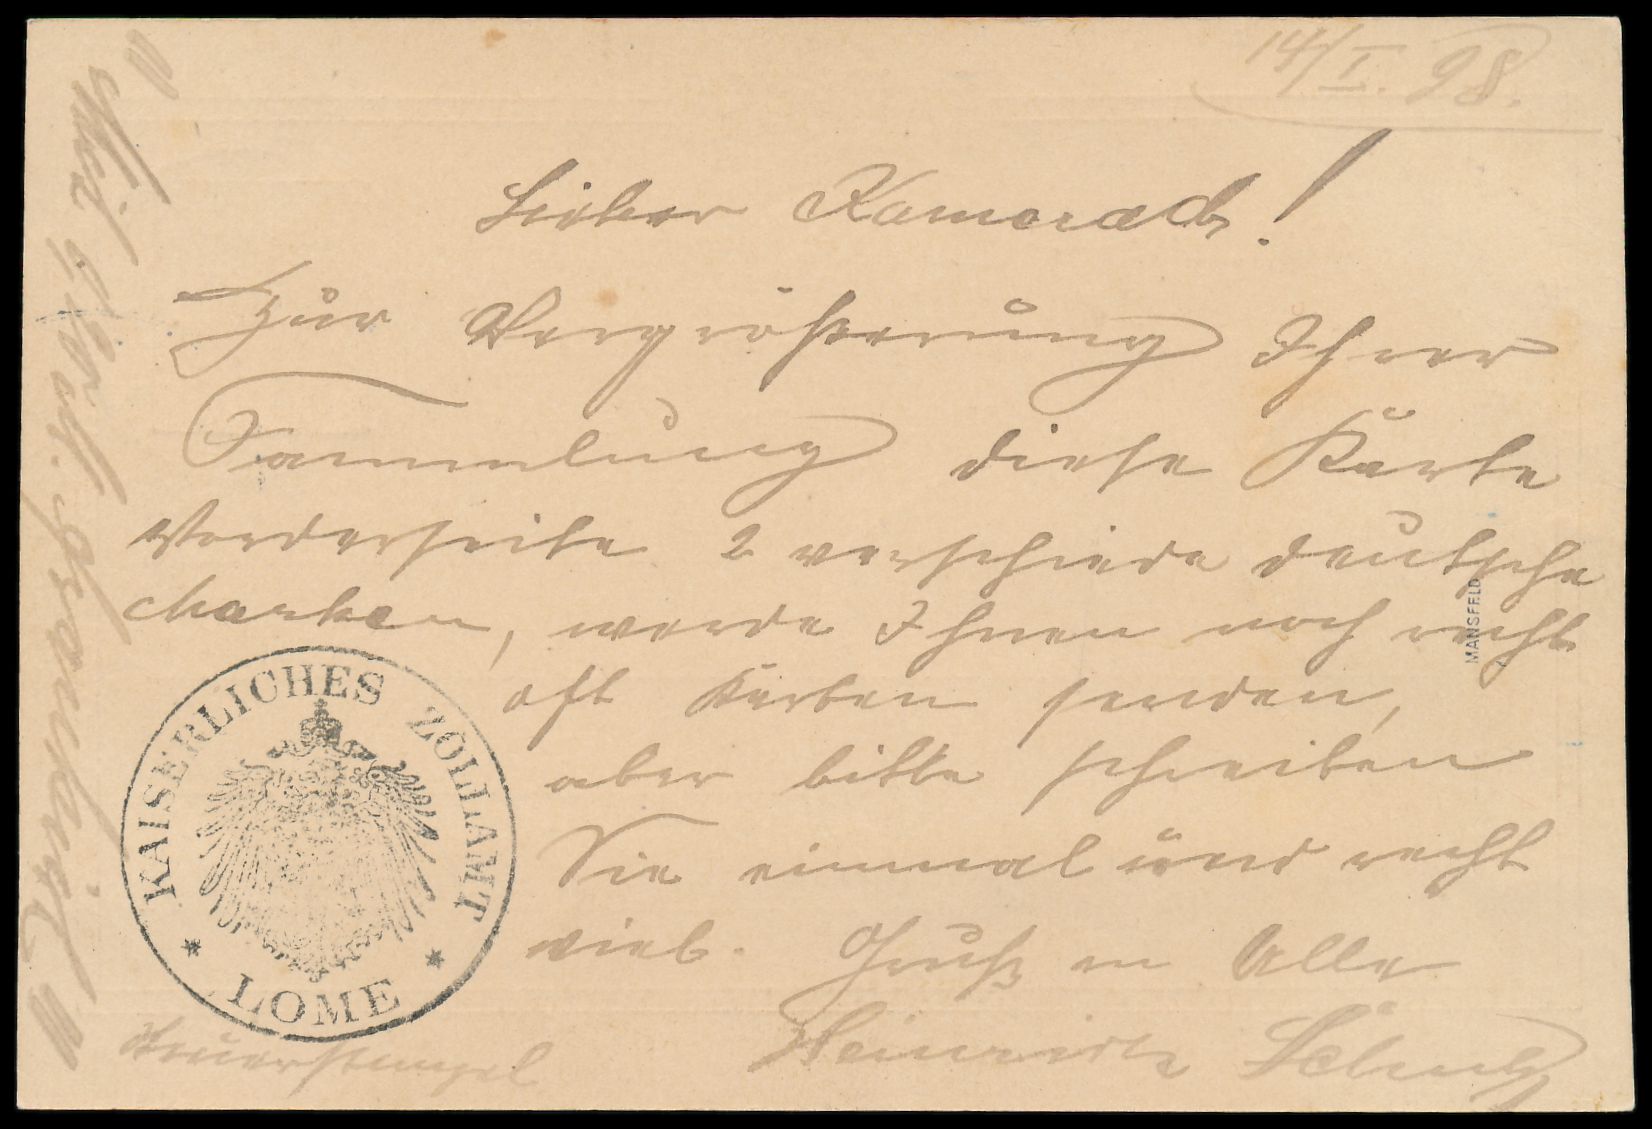 14/I. 98.
Lieber Kamerad!
Zur Vergrößerung Ihrer
Sammlung diese Karte
Vorderseite 2 verschiede deutsche
Marken, werde Ihnen noch recht
oft Karten senden,
aber bitte schreiben
Sie einmal und recht
viel. Gruß an Alle
Heinrich
KAISERLICHES ZOLLAMT
* LOME *
MANSFELD
"Mit